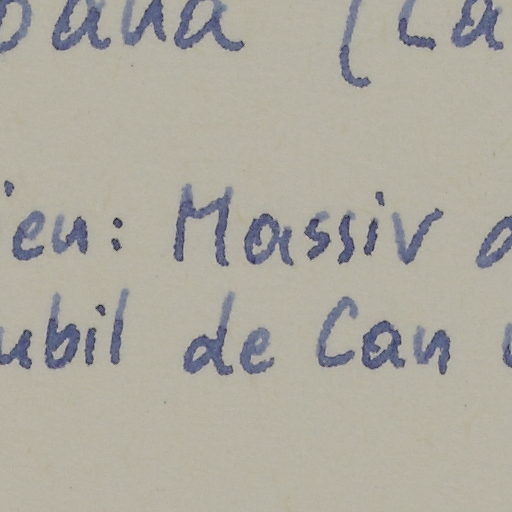 bana (La
ien: Massiv d
ubil de Can